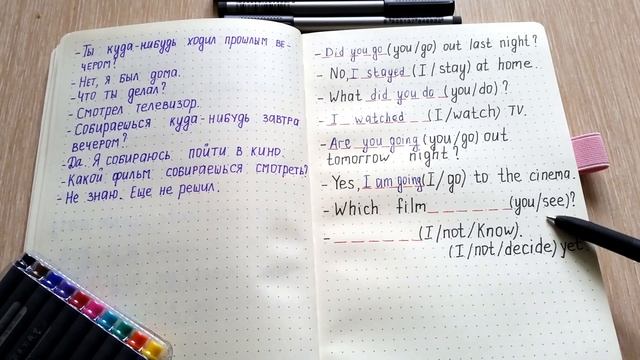 -Ты куда-нибудь ходил прошлым ве-
чером?
-Нет, я был дома.
-Что ты делал?
-Смотрел телевизор.
-Собираешься куда-нибудь завтра
вечером?
-Да. Я собираюсь пойти в кино.
-Какой фильм собираешься смотреть?
-Не знаю. Еще не решил.
-Did you go (you/go) out last night?
-No, I stayed (I/stay) at home.
-What did you do (you/do)?
-I watched (I/watch) TV.
-Are you going (you/go) out
tomorrow night?
-Yes, I am going (I/go) to the cinema.
-Which film ______ (you/see)?
-______ (I/not/know).
(I/not/decide) yet